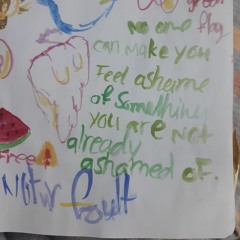 green
no one
can make you
Feel ashame
of Something
you are not
already
ashamed of.
Free
Not ur fault